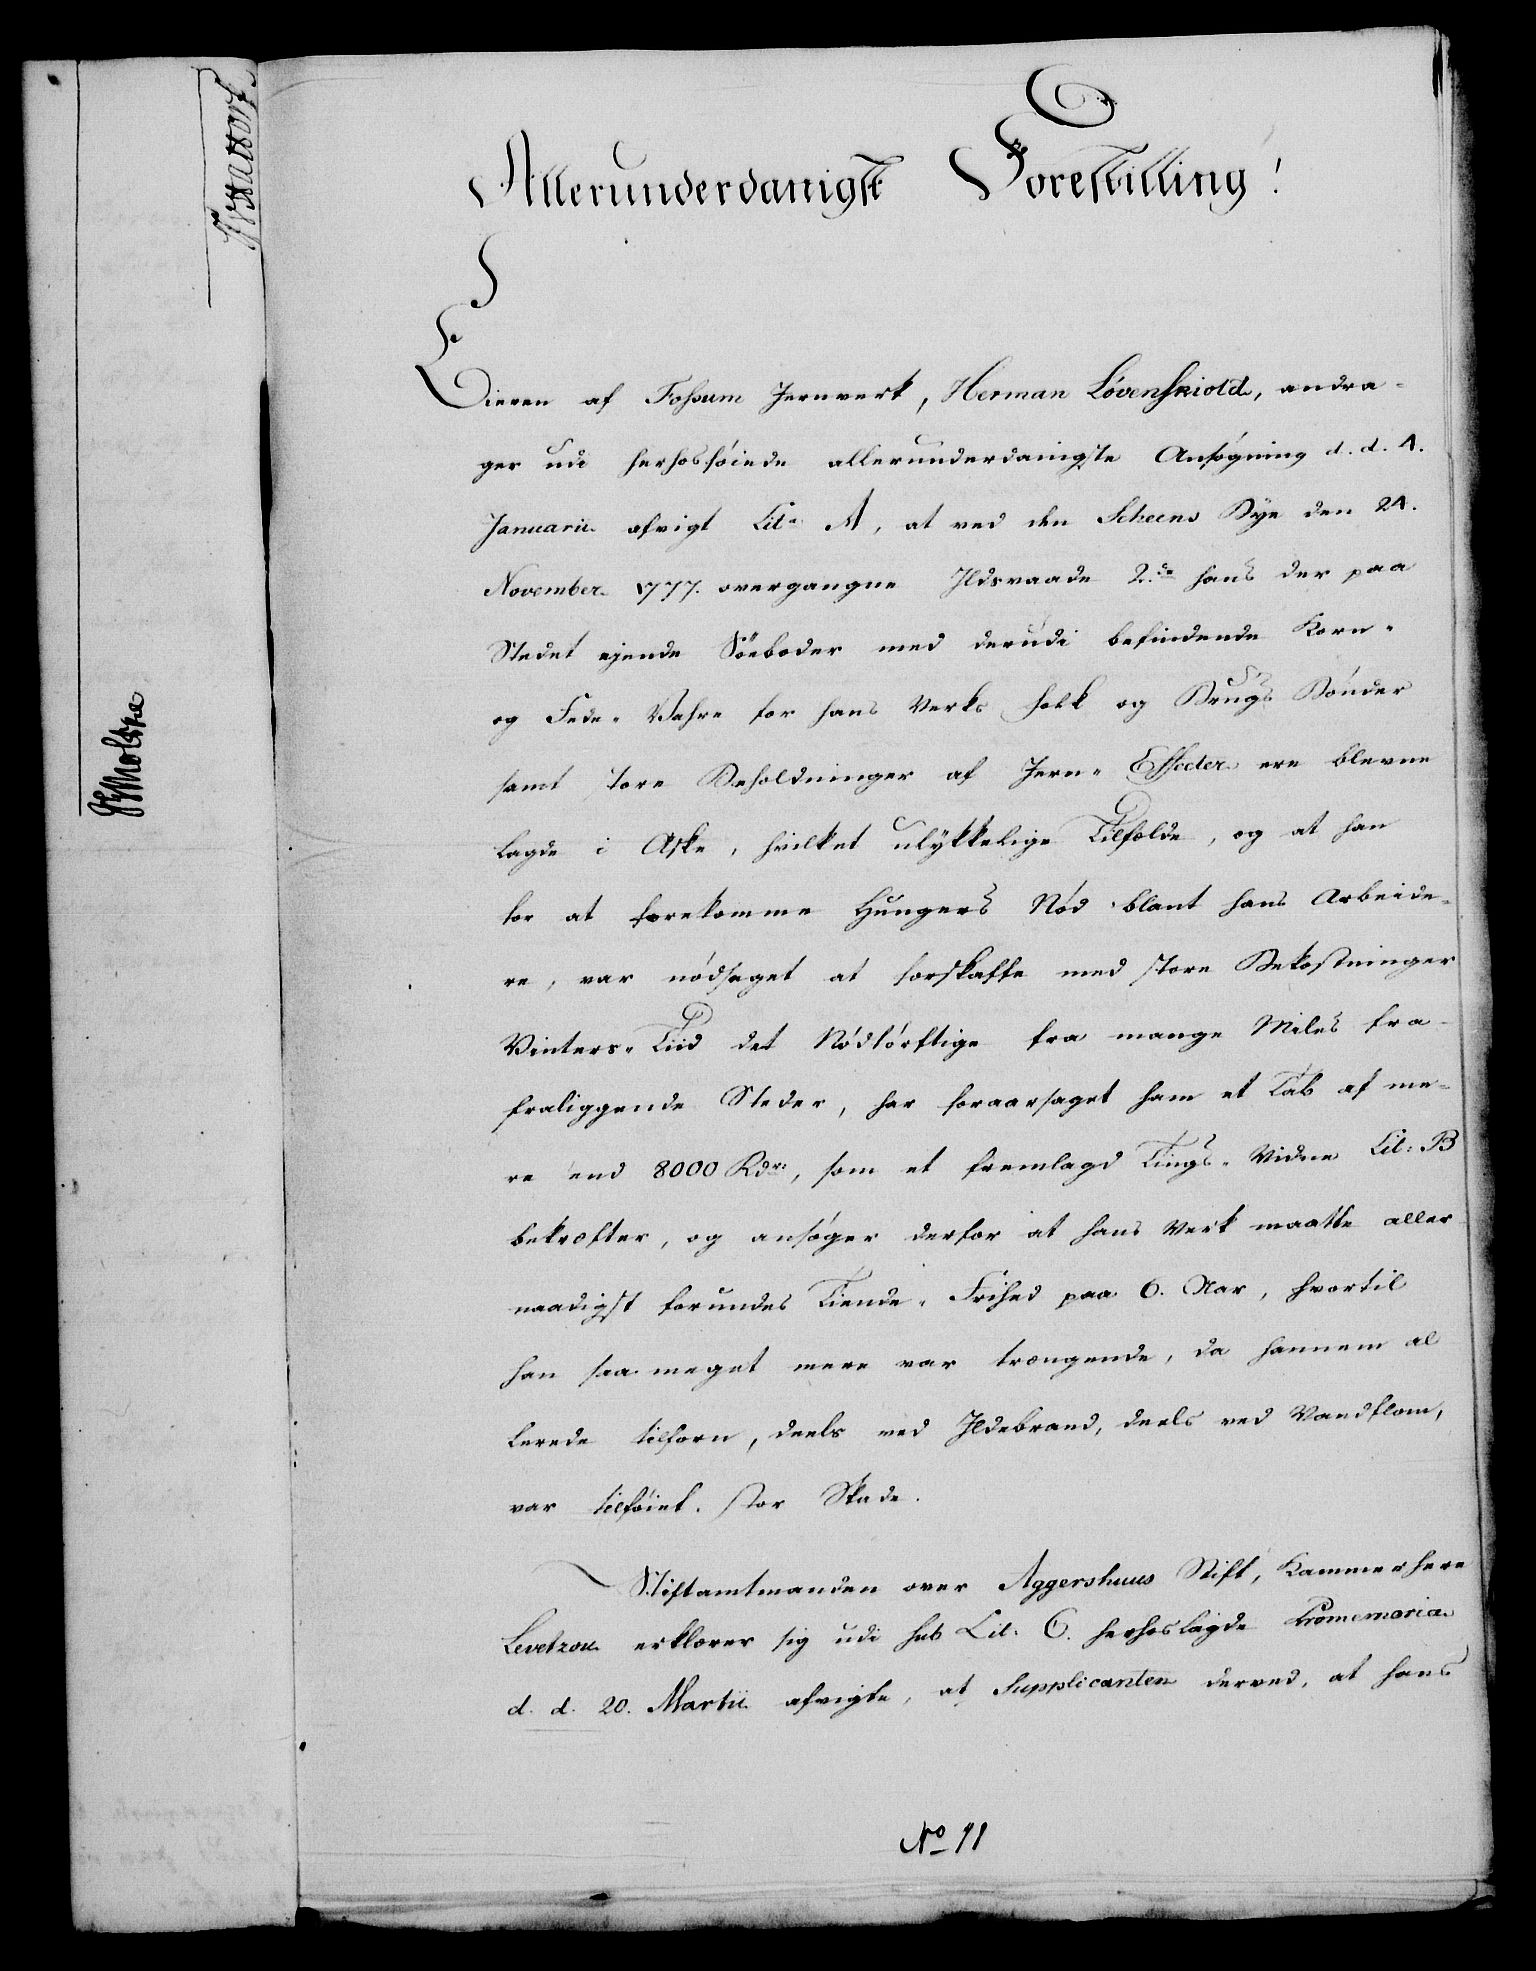 Allerunderdanigst Forestilling!
Eieren af Fossum Jernverk, Herman Løvenskiold, andra-
ger udi herhosføiede allerunderdanigste Ansøgning d. d. 4.
Januarii afvigt Lit: A, at ved den Scheens Bye den 24.
November 1777. overgangne Ildsvaade 2de hans der paa
Stedet ejende Söeboder med derudi befindende Korn-
og Fede-Vahre for hans Verks Folk og Brugs Bønder
samt store Beholdninger af Jern-Effecter ere blevne
lagde i Aske, hvilket ulykkelige Tilfælde, og at han
for at forekomme Hungers Nød blant hans Arbeide-
re, var nødsaget at forskaffe med store Bekostninger
Vinters-Tiid det Nødtørftige fra mange Miles fra-
fraliggende Steder, har foraarsaget ham et Tab af me-
re end 8000 Rdr:, som et fremlagd Tings-Vidne Lit: B
bekræfter, og ansøger derfor at hans Verk maatte aller
naadigst forundes Tiende-Frihed paa 6. Aar, hvortil
han saa meget mere var trængende, da hannem al
lerede tilforn, deels ved Ildebrand, deels ved Vandflom,
var tilføiet stor Skade.
Stiftamtmanden over Aggershuus Stift, Kammerherre
Levetzou erklærer sig udi sub Lit: C. herhoslagde Promemoria
d. d. 20. Martii afvigte, at Supplicanten derved, at hans
No 11
JHMoltke